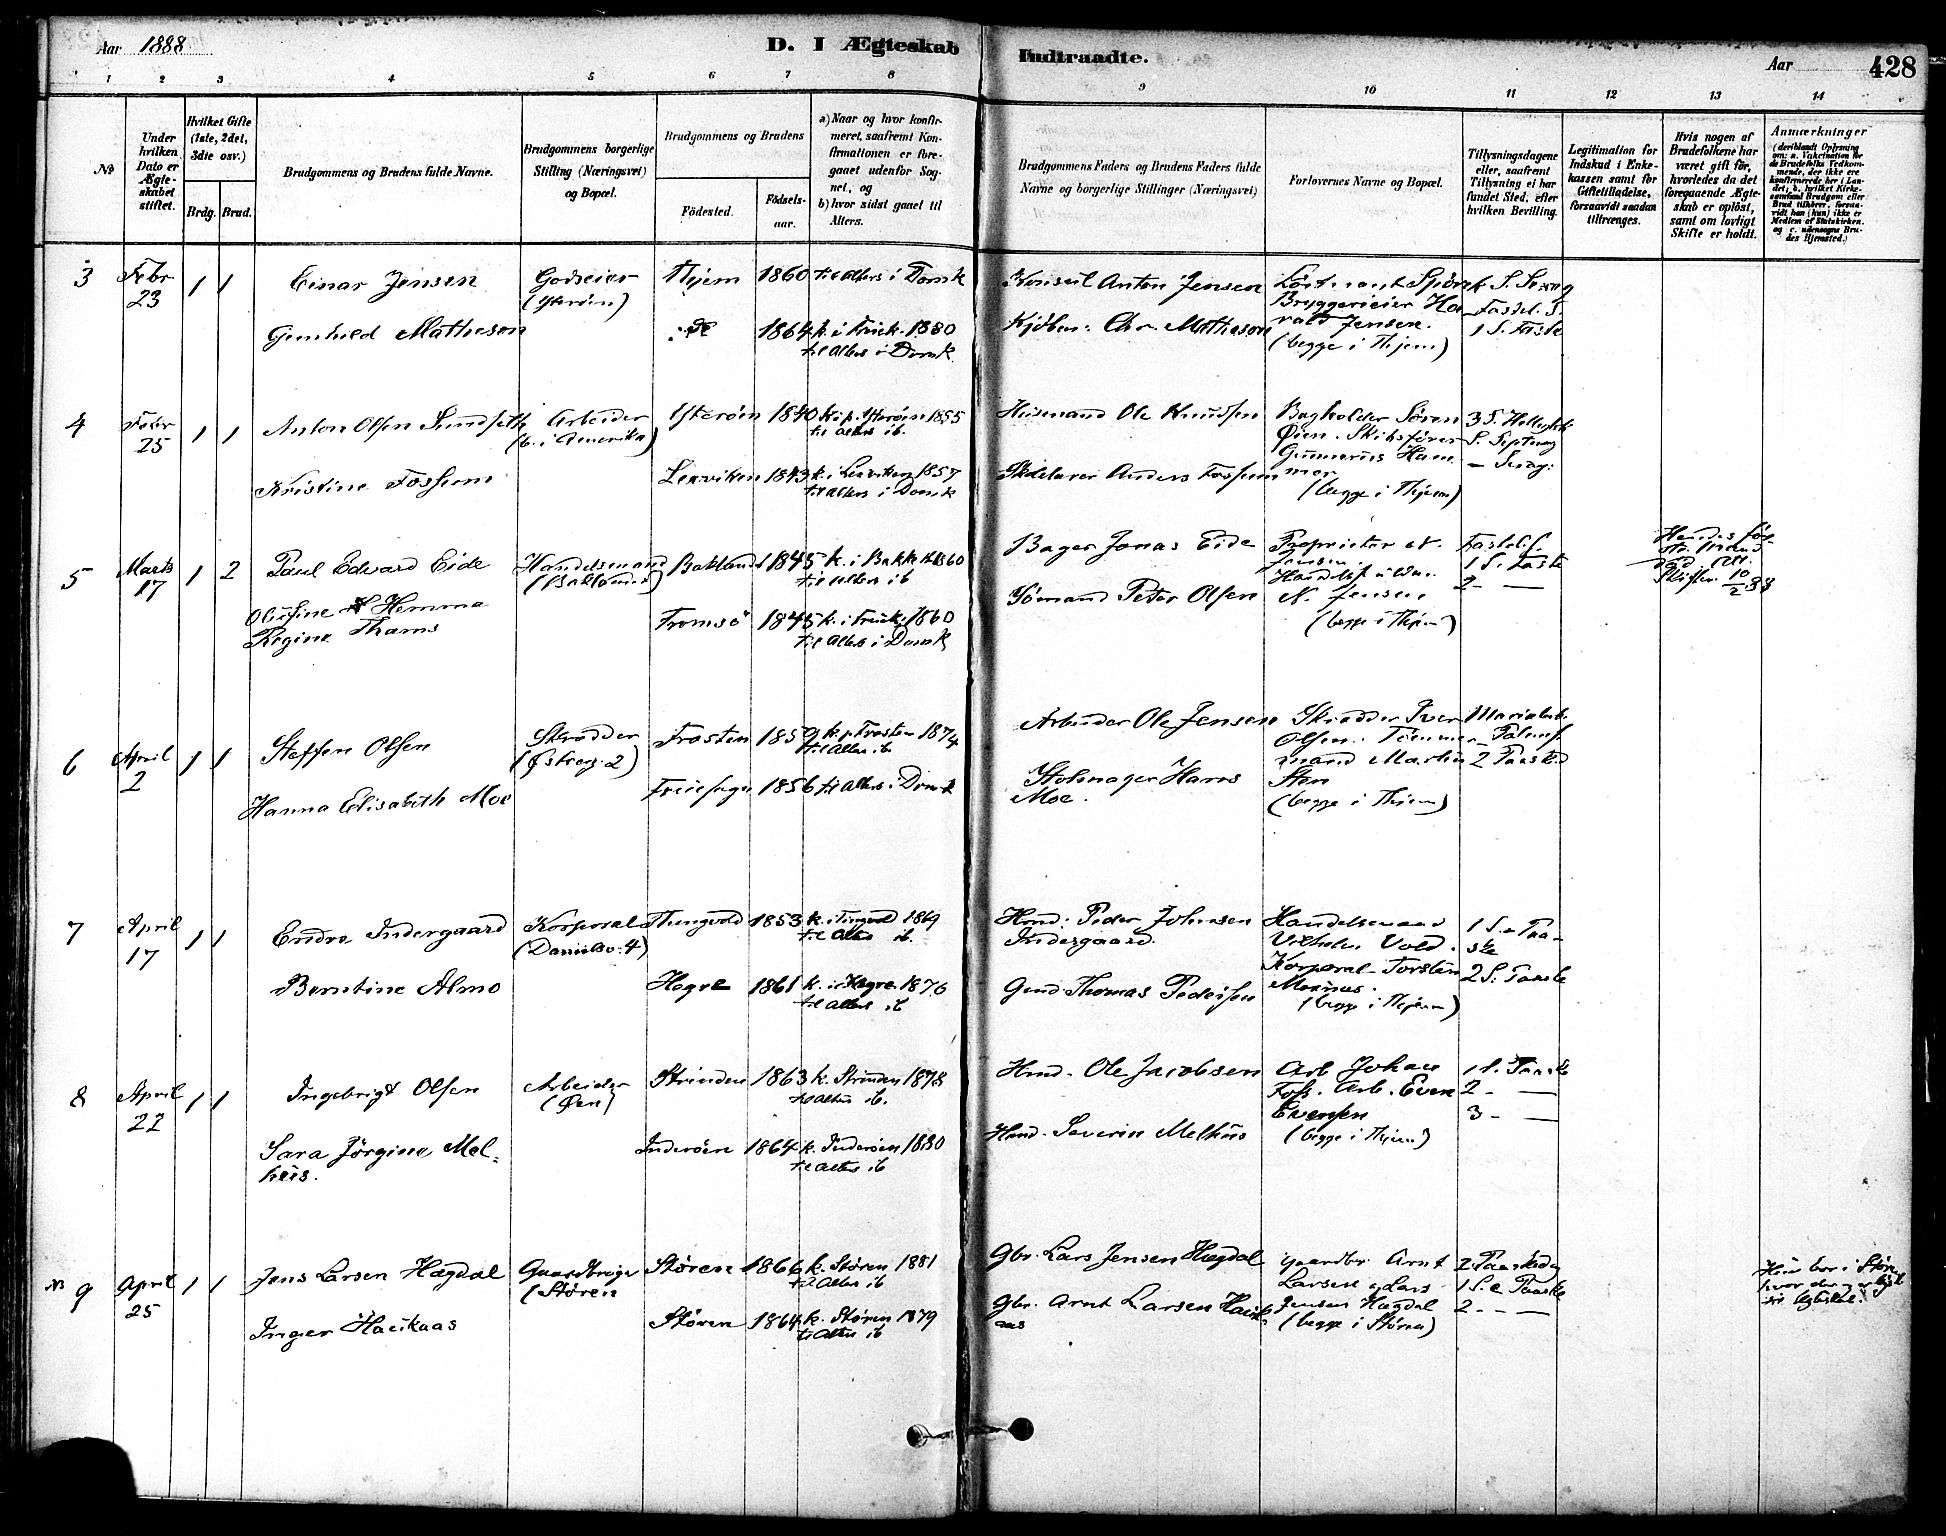 Aar 1888
D. I Ægteskab Indtraadte.
Aar 428
1 2 3 4 5 6 7 8 9 10 11 12 13 14
No
Under hvilken Dato er Ægteskabet stiftet.
Hvilket Gifte (1ste, 2det, 3die osv.)
Brdg. Brud.
Brudgommens og Brudens fulde Navne.
Brudgommens borgerlige Stilling (Næringsvei) og Bopæl.
Brudgommens og Brudens
Fødested. Fødselsaar.
a) Naar og hvor konfirmeret, saafremt Konfirmationen er foregaaet udenfor Sognet, og
b) hvor sidst gaaet til Alters.
Brudgommens Faders og Brudens Faders fulde Navne og borgerlige Stillinger (Næringsvei)
Forlovernes Navne og Bopæl.
Tillysningsdagene eller, saafremt Tillysning ei har fundet Sted, efter hvilken Bevilling.
Legitimation for Indskud i Enkekassen samt for Giftetilladelse, forsaavidt saadan tiltrænges.
Hvis nogen af Brudefolkene har været gift før, hvorledes da det foregaaende Ægteskab er opløst, samt om lovligt Skifte er holdt.
Anmærkninger
3 Febr 23 1 1 Einar Jensen Godseier (Ytterøen) Thjem 1860 til Alters i Domk Konsul Anton Jensen
Gunhild Matheson do 1864 k. i Frue k. 1880 til Alters i Domk. Kjøbm: Chr. Matheson
Bryggerieier Harald Jensen. (begge i Thjem)
Fastel. S.
1 S. Faste
4 Febr 25 1 1 Anton Olsen Sundseth Arbeider (b. i Amerika) Ytterøen 1840 k. i p. Ytterøen 1855 til Alters ib. Husmand Ole Knudsen
Kristine Fossum Lexviken 1843 k. i Lexviken 1857 til Alters i Domk Anders Fossum
Bogholder Søren Øien. Skibsfører Gunnerus Hammer (begge i Thjem)
S. Septuag
5 Marts 17 1 2 Paul Edvard Eide Handelsmand (Baklandet) Bakland 1845 k. i Bakke k 1860 til Alters ib Bager Jonas Eide
Olufine Hemma Regine Thams Tromsø 1845 k. i Frue k. 1860 til Alters i Domk Sømand Peter Olsen
Proprietær N. Jensen.
N. Jensen (begge i Thjem)
Fastel. S.
1 S. Faste
2 - —
10/2 88
6 April 2 1 1 Steffen Olsen Skrædder Frosten 1859 k. p Frosten 1874 til Alters ib. Arbeider Ole Jensen
Hanna Elisabeth Moe 1856 til Alters i Domk Hans Moe.
Skrædder Iver Olsen. Tømmermand Martin Sten (begge i Thjem)
2 Paaskd
7 April 17 1 1 Endre Indergaard Korporal Thingvold 1853 k. i Tingvold 1869 til Alters ib. Hmd: Peder Johnsen Indergaard.
Berntine Almo Hegre 1861 k. i Hegre 1876 til Alters ib Gmd Thomas Pedersen
Handelsmand Vilhelm Vold. Korporal Torsten (begge i Thjem)
1 S. e Paaske
2 S. Paaske
8 April 22 1 1 Ingebrigt Olsen Arbeider (Øen) Strinden 1863 k. Strinden 1878 til Alters ib. Hmd. Ole Jacobsen
Sara Jørgine Melhuus. Inderøen 1864 k. Inderøen 1880 til Alters ib Hmd. Severin Melhus
Arb Johan Foss. Arb. Even Evensen (begge i Thjem)
1 S. Paaske
2 - —
3 - —
9 April 25 1 1 Jens Larsen Hægdal Gaardbruger (Støren Støren 1866 k. Støren 1881 til Alters ib Gbr. Lars Jensen Hægdal
Inger Haukaas Støren 1864 k. Støren 1879 til Alters ib Gbr. Arnt Larsen Haukaas
Gaardbr Arnt Larsen og Lars Jensen Hægdal (begge i Støren)
2 Paaskedag
1 S. e Paaske
2 - —
Hun bor i Støren